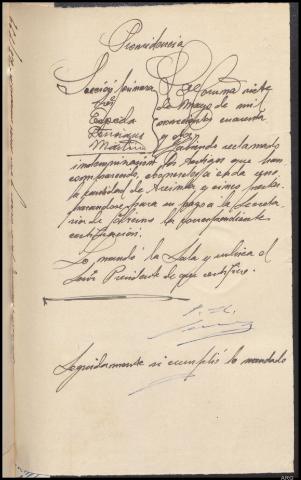 Providencia
Sección primera
Sres
Cepeda
Enríquez
Martín
Coruña siete
de Mayo de mil
novecientos cuarenta
y ocho
Habiendo reclamado
indemnización los testigos que han
comparecido, abónense a cada uno
la cantidad de treinta y cinco pesetas
para su pago a la Secreta-
ría de Gobierno la correspondiente
certificación.
Lo mandó la Sala y rubrica el
Señor Presidente de que certifico.
Seguidamente se cumplió lo mandado
ARG